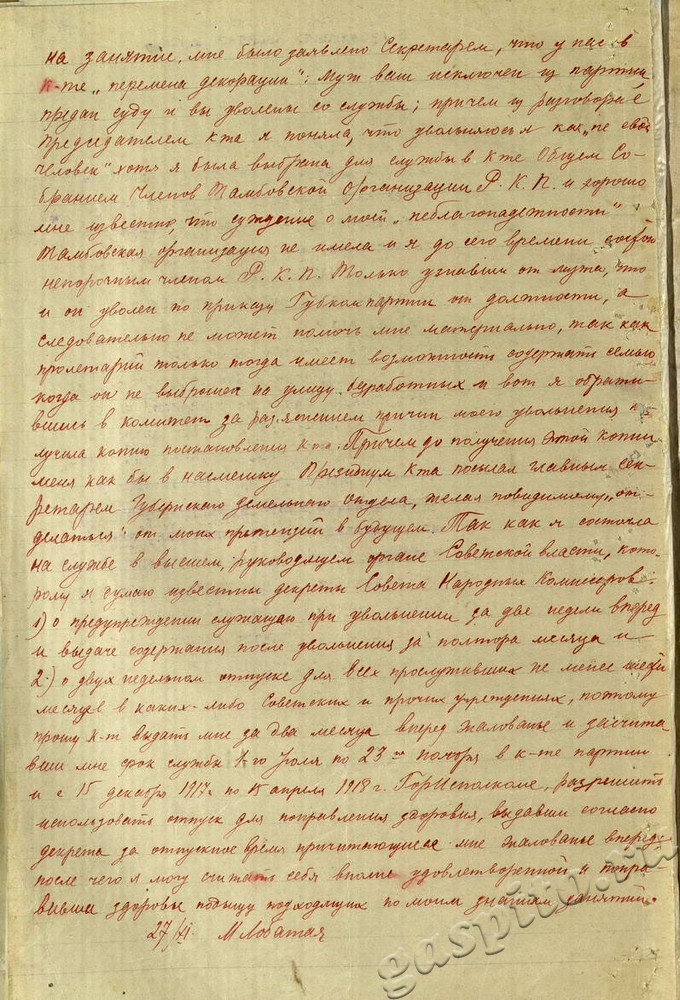 на занятие, мне было заявлено Секретарем, что у нас в
К-те „перемена декорации": Муж ваш исключен из партии,
предан суду и вы уволены со службы; причем из разговора с
Председателем К-та я поняла, что увольняюсь я как „не свой
человек" хотя я была выбрана для службы в К-те Общем Со-
бранием Членов Тамбовской Организации Р.К.П. и хорошо
мне известно, что суждение о моей „неблагонадежности"
Тамбовская организация не имела и я до сего времени состою
непорочным членом Р.К.П. Только узнавши от мужа, что
и он уволен по приказу Губком партии от должности, а
следовательно не может помочь мне материально, так как
пролетарий только тогда имеет возможность содержать семью
когда он не выброшен на улицу безработных и вот я обрати-
вшись в комитет за раз'яснением причин моего увольнения по-
лучила копию постановления К-та. Причем до получения этой копии
меня как бы в насмешку Президиум К-та посылал главным сек-
ретарем Губернского Земельного отдела, желая повидимому „от-
делаться" от моих претензий в будущем. Так как я состояла
на службе в высшем, руководящем органе Советской власти, кото-
рому я думаю известны декреты Совета Народных Комиссаров:
1) о предупреждении служащаго при увольнении за две недели вперед
и выдаче содержания после увольнения за полтора месяца и
2) о двух недельном отпуске для всех прослуживших не менее шести
месяцев в каких-либо Советских и прочих учреждениях, поэтому
прошу К-т выдать мне за два месяца вперед жалованье и засчита-
вши мне срок службы 1-го Июля по 23-е ноября в к-те партии
и с 15 декабря 1917 г. по 15 апреля 1918 г. ГорИсполкоме, разрешить
использовать отпуск для поправления здоровия, выдавши согласно
декрета за отпускное время причитающееся мне жалованье вперед,
после чего я могу считать себя вполне удовлетворенной и попра-
вивши здоровье подыщу подходящих по моим знаниям занятий.
27/XI. М Лобатая
gaspito.ru